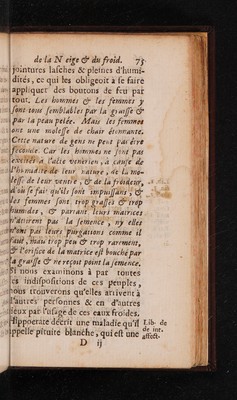 de la Neige & du froid. 75
jointures lasches & pleines d'humi-
dités, ce qui les obligeoit à se faire
appliquer des boutons de feu par
tout. Les hommes & les femmes y
sont tous semblables par la graisse &
par la peau pelée. Mais les femmes
ont une molesse de chair étonnante.
Cette nature de gens ne peut pas être
feconde. Car les hommes ne sont pas
excités à l'acte venerien, à cause de
l'humidité de leur nature, de la mo-
lesse de leur ventre, & de la froideur,
d'où se fait qu'ils sont impuissans; &
les femmes sont trop grasses & trop
humides, & partant leurs matrices
n'attirent pas la semence, ny elles
n'ont pas leurs purgations comme il
faut, mais trop peu & trop rarement,
& l'orifice de la matrice est bouché par
la graisse & ne reçoit point la semence.
Et nous examinons à par toutes
ces indispositions de ces peuples,
nous trouverons qu'elles arrivent à
d'autres personnes & en d'autres
lieux par l'usage de ces eaux froides.
Hipporate décrit une maladie qu'il
appelle pituite blanche, qui est une
Lib. de
de int.
affect.
D ij